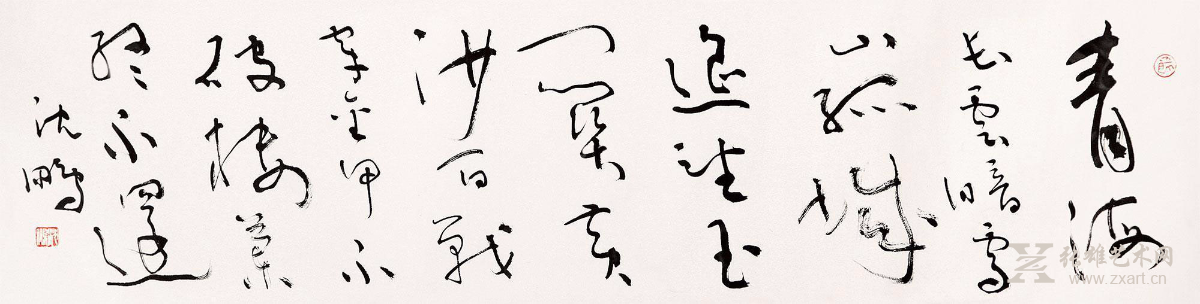 青海
长雲暗雪
山孤城
遥望玉
门關黄
沙百戰
穿金甲不
破楼蘭
终不還
沈鹏
张雄艺术网
www.zxart.cn